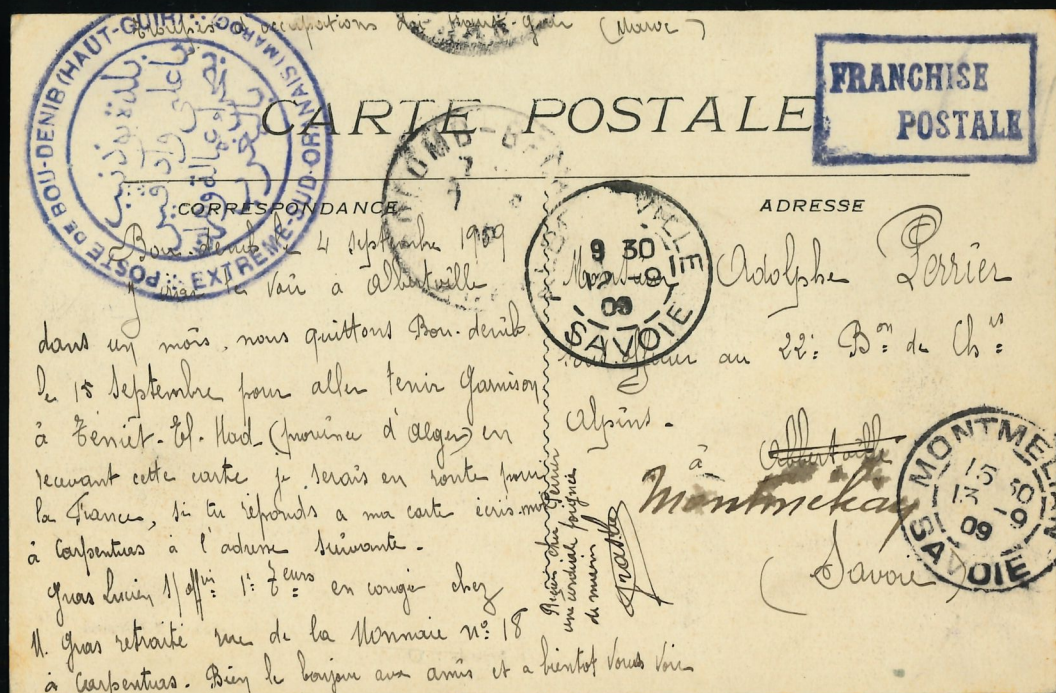 Troupes d'occupations du Haut-Guir (Maroc)
POSTE DE BOU-DENIB (HAUT-GUIR)
EXTRÊME-SUD-ORANAIS (MAROC)
CARTE POSTALE
FRANCHISE
POSTALE
CORRESPONDANCE
ADRESSE
COLOMB-B
Bou-denib le 4 septembre 1909
J'irai te voir à Albertville
dans un mois, nous quittons Bou-denib
le 15 septembre pour aller tenir Garnison
à Teniet-El-Had (province d'Alger) en
recevant cette carte je serais en route pour
la France, si tu réponds a ma carte écris-moi
à Carpentras à l'adresse suivante.
Gras Lucien s/offr 1r Zeurs en congé chez
M. Gras retraité rue de la Monnaie n°: 18
à Carpentras. Bien le bonjour aux amis et a bientot Vous Voir
Reçois cher Perrier
une cordiale poignée
de main
VILLE
9 30
12 -9
09
SAVOIE
Monsieur Adolphe Perrier
sous-officier au 22: Bon: de Chrs:
Alpins.
à Albertville
Montmelian
(Savoie)
MONTMELIAN
15 30
13 -9
09
SAVOIE